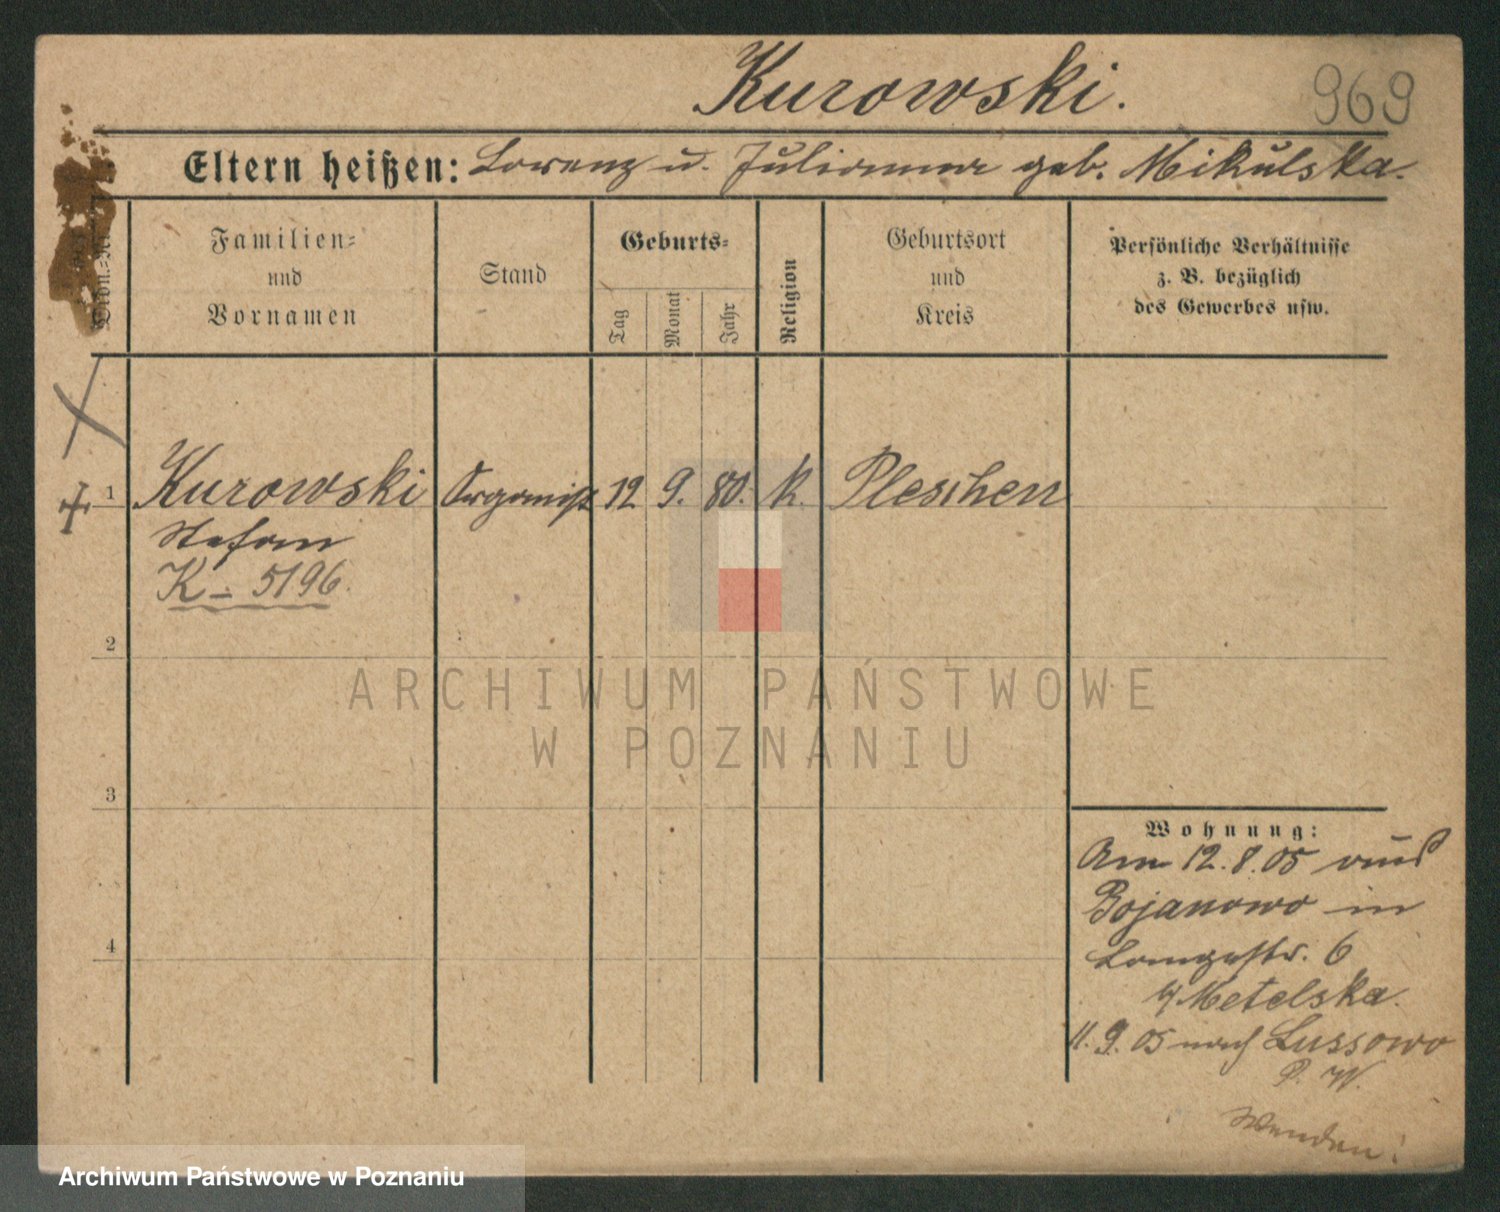 Kurowski.
969
Eltern heißen: Lorenz u. Julianna geb. Mikulska.
Ordn.=Nr.
Familien=
und
Vornamen
Stand
Geburts=
Tag
Monat
Jahr
Religion
Geburtsort
und
Kreis
Persönliche Verhältnisse
z. B. bezüglich
des Gewerbes usw.
1 Kurowski Organist 12 9. 80. k. Pleschen
Stefan
K = 5196.
2
3
4
Wohnung:
Am 12.8.05 aus
Bojanowo in
Langestr. 6
b/ Metelska.
11. 9. 05 nach Lussowo
P. W.
Wenden!
ARCHIWUM PAŃSTWOWE
W POZNANIU
Archiwum Państwowe w Poznaniu